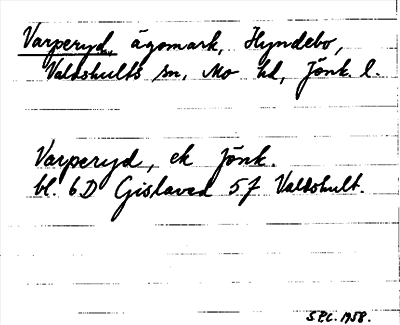 Varperyd, ägomark, Hyndebo,
Valdshults sn, Mo hd, Jönk. l.
Varperyd, ek Jönk.
bl. 6D Gislaved 5f Valdshult.
1958.